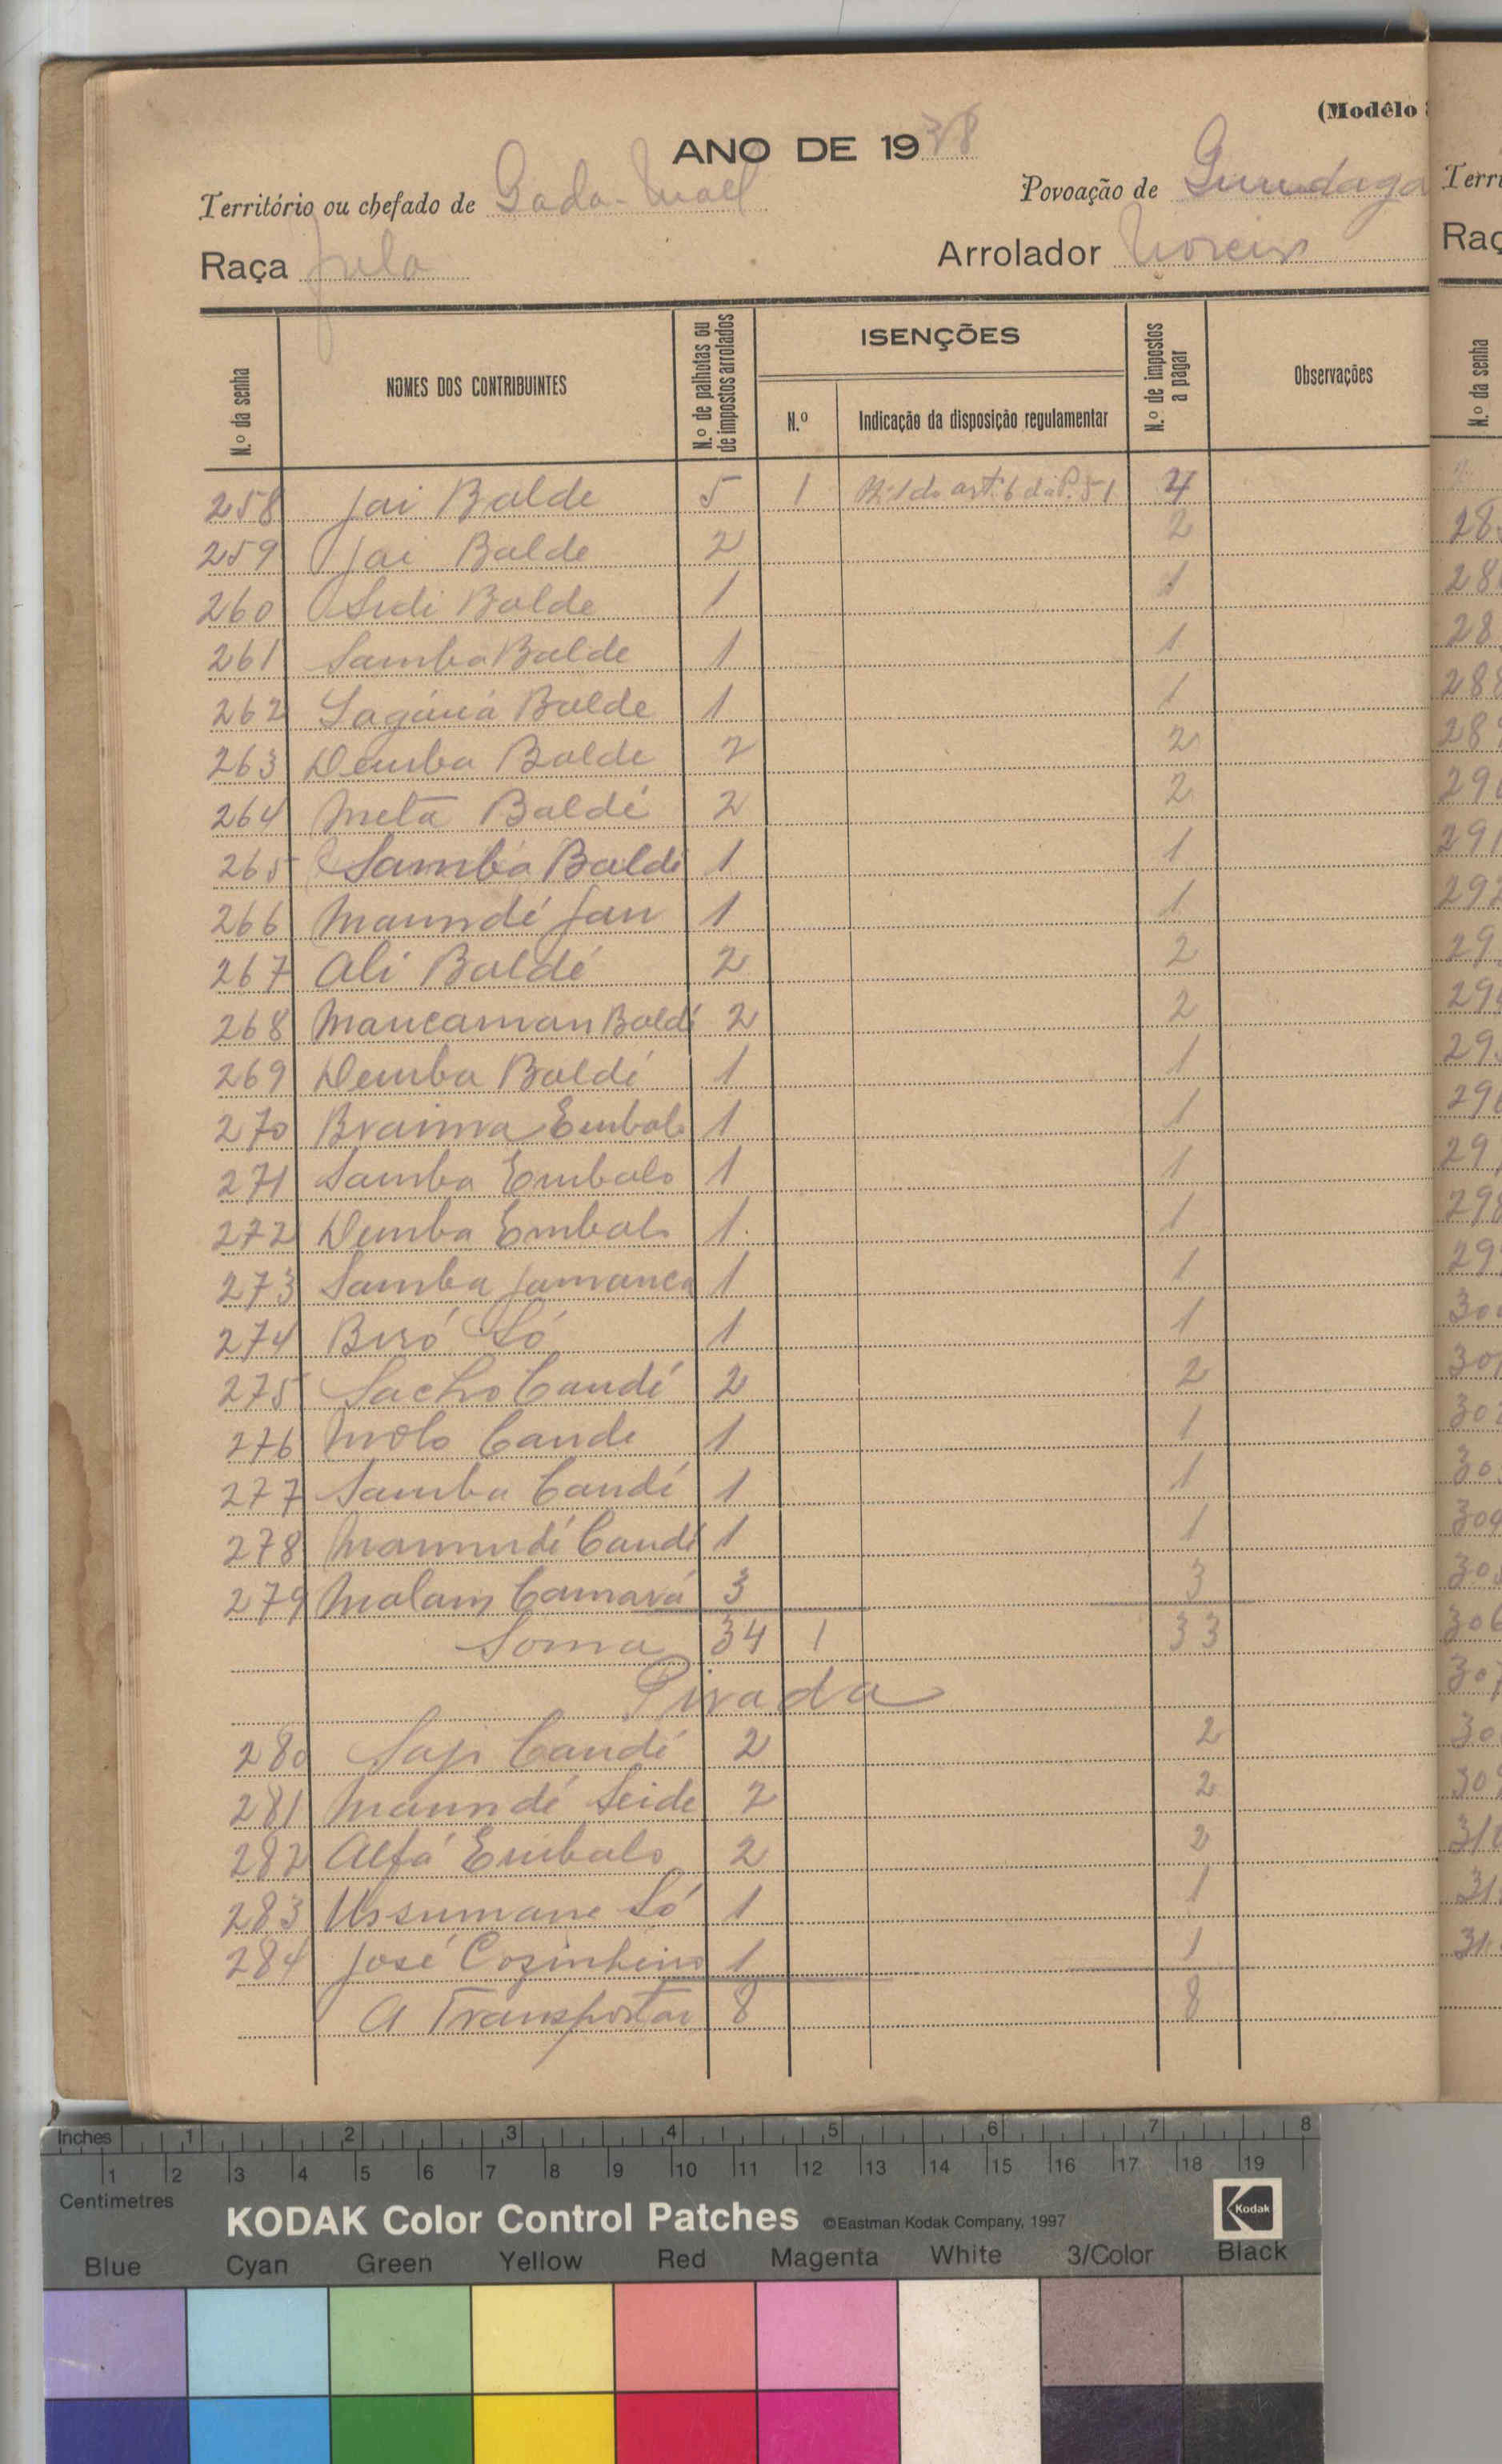 (Modêlo
ANO DE 1938
Território ou chefado de Gada-Mael Povoação de
Raça Fula Arrolador
N.º da senha NOMES DOS CONTRIBUINTES N.º de palhotas ou de impostos arrolados ISENÇÕES N.º Indicação da disposição regulamentar N.º de impostos a pagar Observações
258 Jai Balde 5 1 4
259 Jai Balde 2 2
260 Sidi Balde 1 1
261 Samba Balde 1 1
262 Balde 1 1
263 Demba Balde 2 2
264 Meta Baldé 2 2
265 Samba Baldé 1 1
266 Maundé Jau 1 1
267 Ali Baldé 2 2
268 Mancaman Baldé 2 2
269 Demba Baldé 1 1
270 Braima Embalo 1 1
271 Samba Embalo 1 1
272 Demba Embalo 1 1
273 Samba Jamanca 1 1
274 Biró Só 1 1
275 Sacho Candé 2 2
276 Molo Cande 1 1
277 Samba Candé 1 1
278 Maundé Candé 1 1
279 Malam Camará 3 3
Soma 34 1 33
Pirada
280 Saji Candé 2 2
281 Maundé Seide 2 2
282 Alfá Embalo 2 2
283 Ussumane Só 1 1
284 José Cozinheiro 1 1
A Transportar 8 8
Terri
Raç
N.º da senha
Inches 1 2 3 4 5 6 7 8
1 2 3 4 5 6 7 8 9 10 11 12 13 14 15 16 17 18 19
Centimetres
KODAK Color Control Patches ©Eastman Kodak Company, 1997 Kodak
Blue Cyan Green Yellow Red Magenta White 3/Color Black